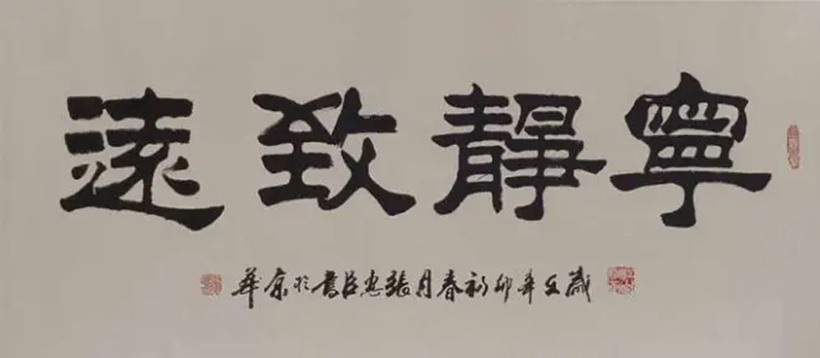 寧靜致遠
歲在辛卯初春月張忠臣書於京華